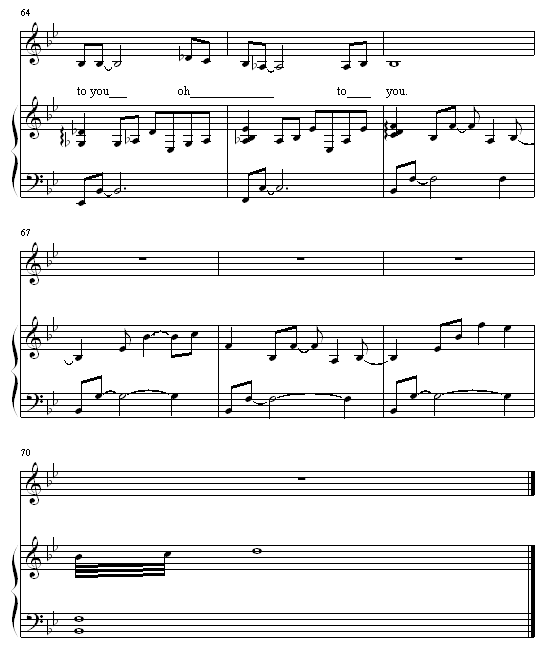 64
to you___ oh______________ to____ you.
67
70